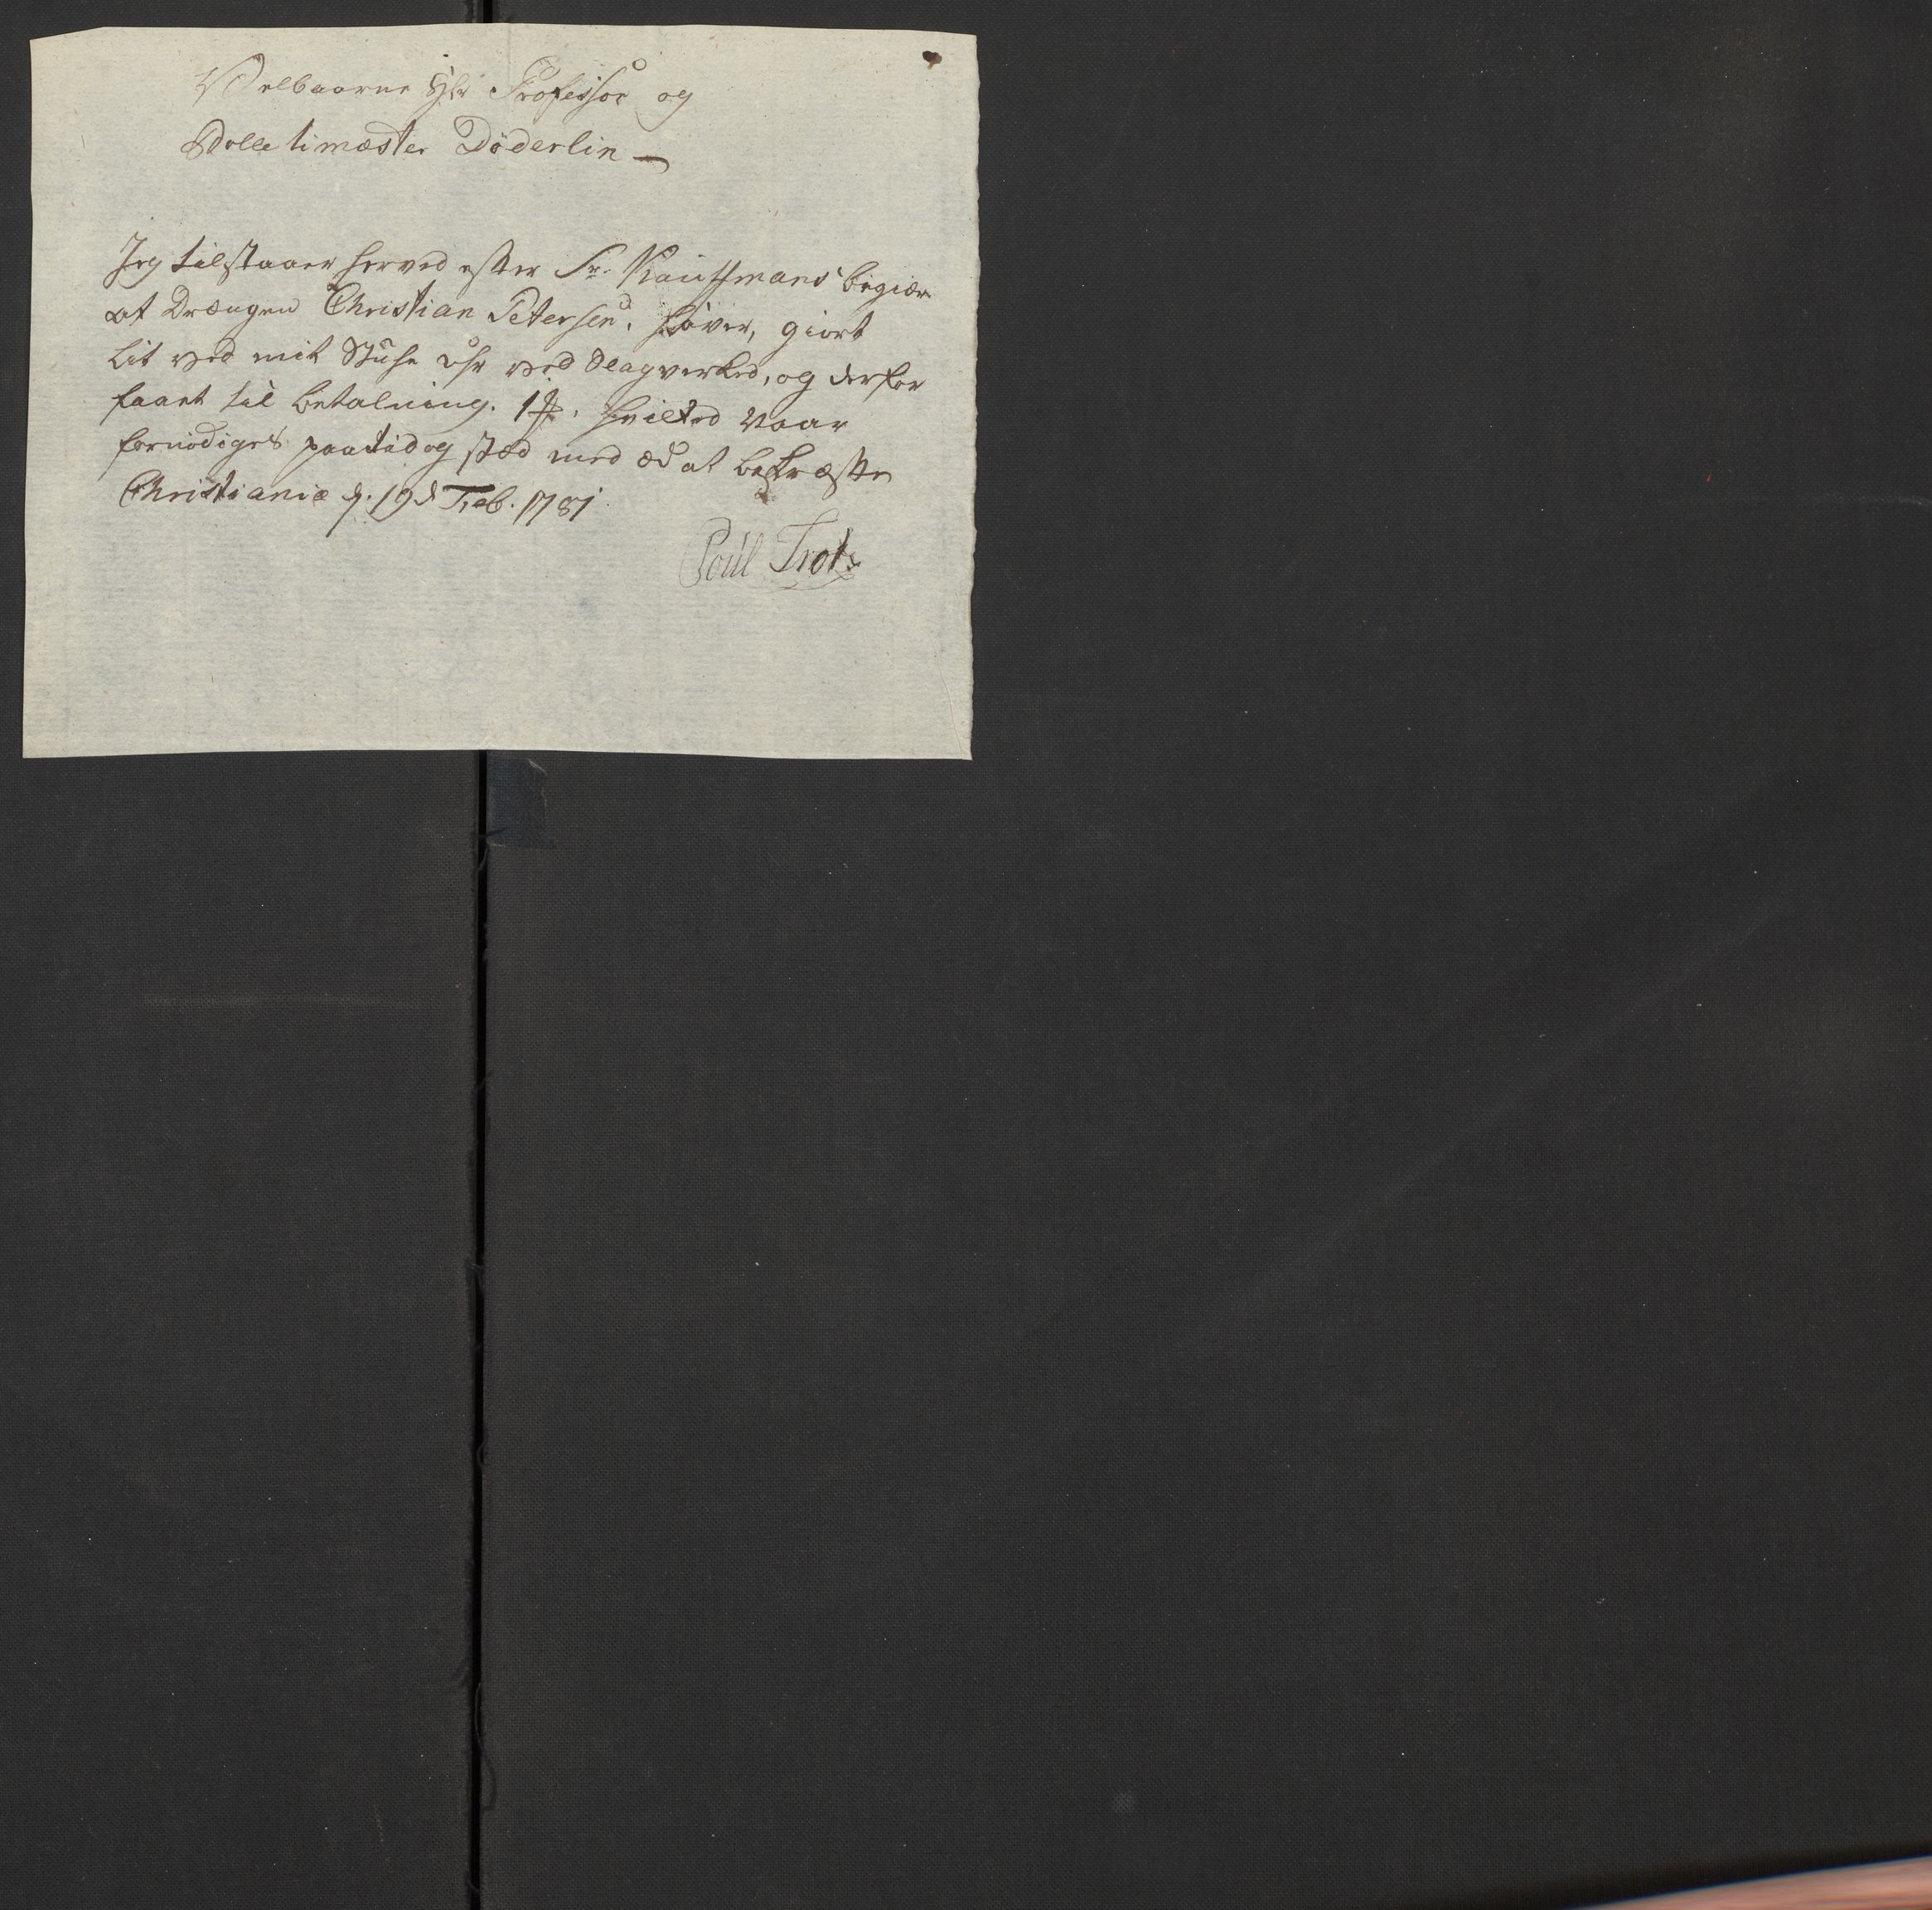 Velbaarne Hr Professor og
Polletimæster Döderlin —
Jeg tilstaaer herved efter Sr. Kauffmans begiær
at Drængen Christian Petersen, haver, giort
lit ved mit Stuhe Uhr ved Slagverked, og derfor
faaet til betalning. 1 , hvilked Vaar
fornödiges paa tid og stæd med æd at bekræfte
Christiania d. 19d Feb. 1781
Poul Trol